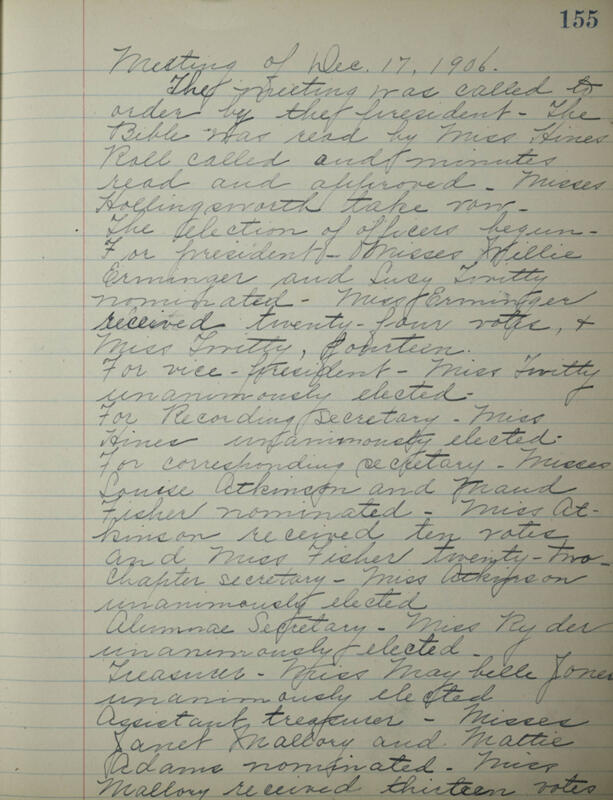 155
Meeting of Dec. 17, 1906.
The meeting was called to
order by the president - The
Bible was read by Miss Hines
Roll called and minutes
read and approved - Misses
Hollingsworth take vow -
The election of officers begun -
For president - Misses Willie
Erminger and Lucy Twitty
nominated - Miss Erminger
received twenty-four votes, &
Miss Twitty, fourteen.
For vice-president - Miss Twitty
unanimously elected.
For Recording secretary - Miss
Hines unanimously elected.
For corresponding secretary - Misses
Louise Atkinson and Maud
Fisher nominated - Miss At-
kinson received ten votes
and Miss Fisher twenty-two -
Chapter secretary - Miss Atkinson
unanimously elected
Alumnae Secretary - Miss Ryder
unanimously elected -
Treasurer - Miss Maybelle Jones
unanimously elected
Assistant treasurer - Misses
Janet Mallory and Mattie
Adams nominated - Miss
Mallory received thirteen votes